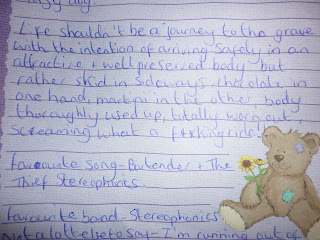 lazy day.
Life shouldn't be a journey to tha grave
with the intention of arriving safely in an
attractive + well preserved body but
rather skid in sideways, chocolate in
one hand, martini in the other, body
thoroughly used up, totally worn out,
screaming what a f**king ride!
favourite song - Bartender + The
Thief Stereophonics.
favourite band - Stereophonics.
Not a lot else to say - I'm running out of